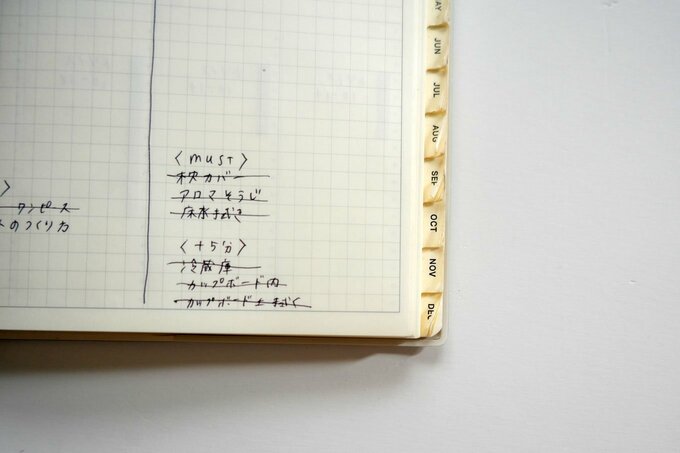 〉
ワンピース
のつくり方
〈must〉
枕カバー
アロマそうじ
床水拭き
〈+5分〉
冷蔵庫
カップボード内
カップボード上拭く
MAY
JUN
JUL
AUG
SEP
OCT
NOV
DEC